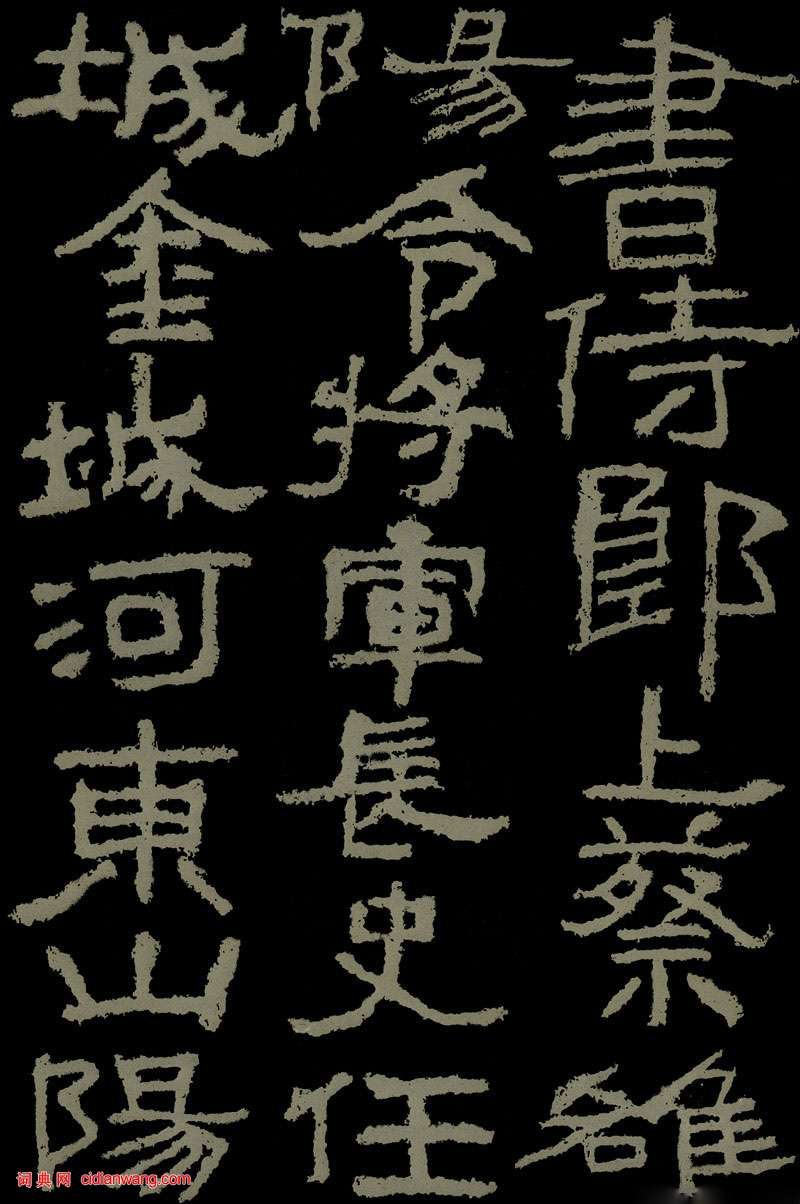 書侍郎上蔡雒
陽令將軍長史任
城金城河東山陽
词典网 cidianwang.com